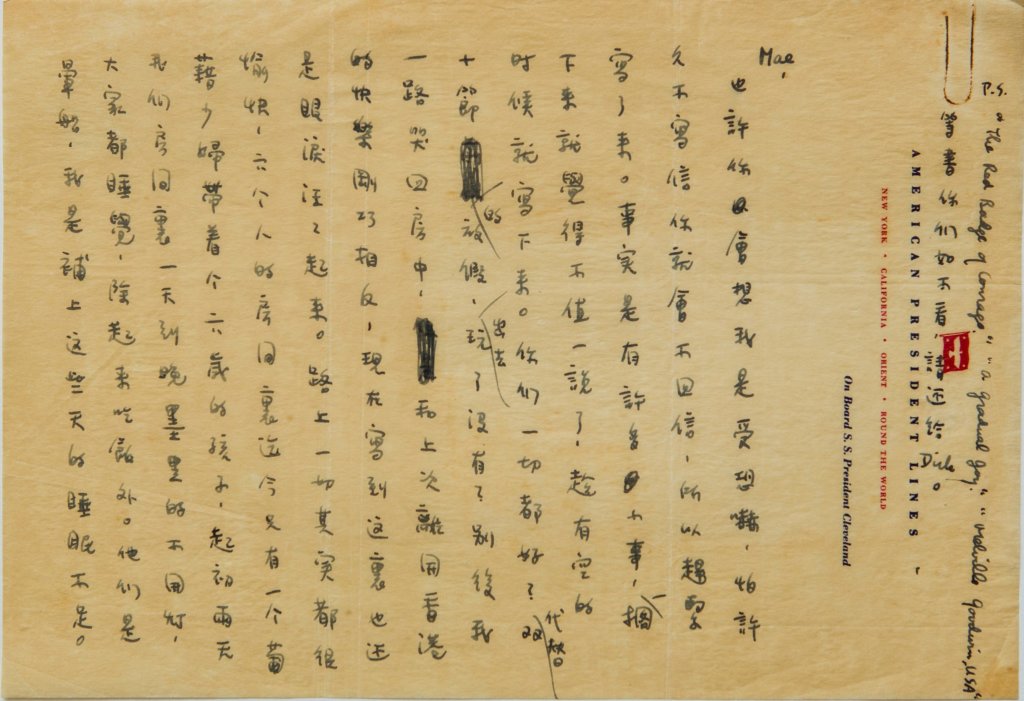 P.S. "The Red Badge of Courage," "a gradual joy," "Melville Goodwin, USA"
書你們如不看,給 Dick。
AMERICAN PRESIDENT LINES
NEW YORK • CALIFORNIA • ORIENT • ROUND THE WORLD
On Board S. S. President Cleveland
Mae,
也許你會想我是受恐嚇,怕許
久不寫信你就會不回信,所以趕緊
寫了來。事实是有許多小事,擱一
下來就覺得不值一說了,趁有空的
时候就寫下來。你們一切都好?代替双
十節的放假,出去玩了沒有?別後我
一路哭回房中,和上次離開香港
的快樂剛巧相反,現在寫到這裏也还
是眼淚汪汪起來。路上一切其实都很
愉快,六个人的房间裏迄今只有一个葡
藉少婦帶着个六歲的孩子,起初兩天
我们房间裏一天到晚墨黑的不開灯,
大家都睡覺,除起來吃飯外。他们是
暈船,我是補上這些天的睡眠不足。